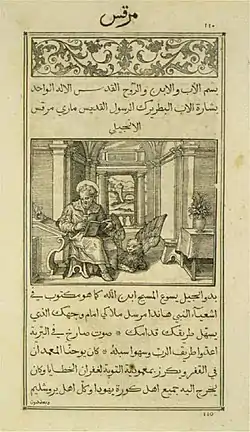 مرقس
بسم الآب والابن والروح القدس الاله الواحد
بشارة الاب البطريرك الرسول القديس ماري مرقس
الانجيلي
بدو انجيل يسوع المسيح ابن الله كما هو مكتوب في
اشعيا النبي هاندا مرسل ملاكي امام وجهك الذي
يسهل طريقك قدامك * صوت صارخ في البرية
اعدوا طريق الرب وسهلوا سبله * كان يوحنا المعمدان
في القفر ويكرز بمعمودية التوبة لغفران الخطايا وكان
تخرج اليه جميع اهل كورة يهودا وكل اهل يروشليم